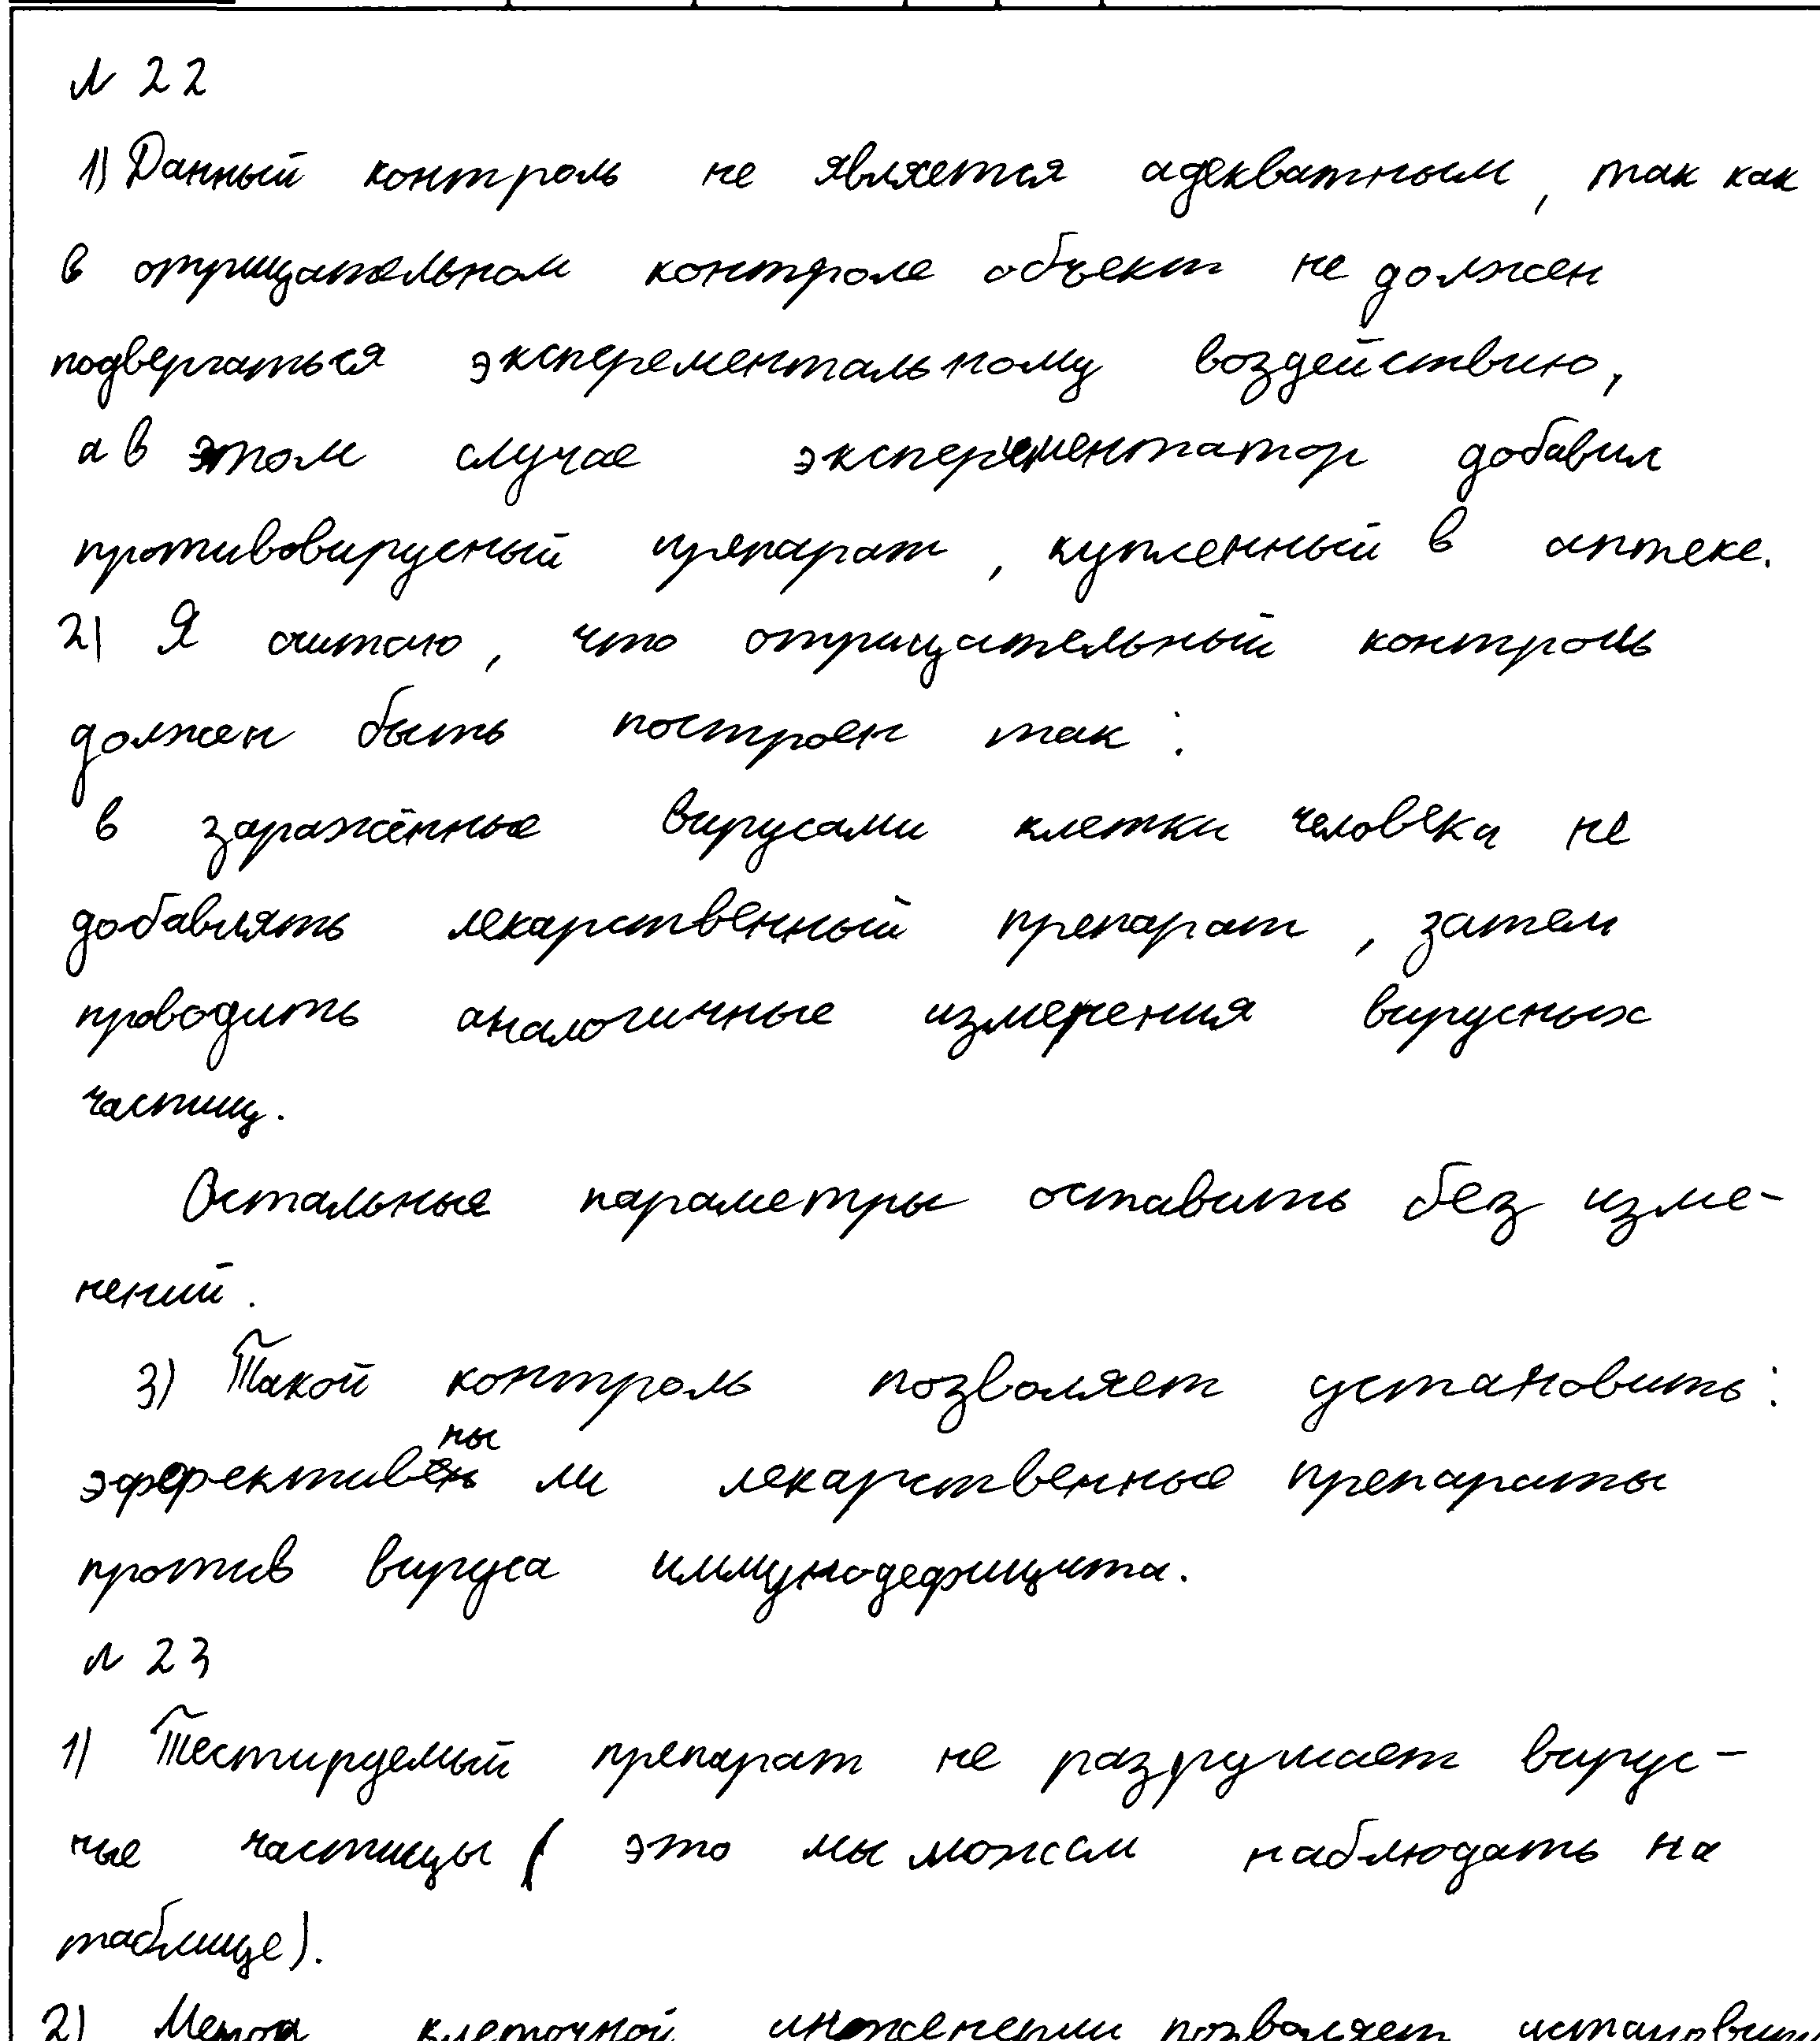 № 22
1) Данный контроль не является адекватным, так как
в отрицательном контроле объект не должен
подвергаться эксперементальному воздействию,
а в этом случае экспериментатор добавил
противовирусный препарат, купленный в аптеке.
2) Я считаю, что отрицательный контроль
должен быть построен так:
в заражённые вирусами клетки человека не
добавлять лекарственный препарат, затем
проводить аналогичные измерения вирусных
частиц.
Остальные параметры оставить без изме-
нений.
3) Такой контроль позволяет установить:
эффективны ли лекарственные препараты
против вируса иммунодефицита.
№ 23
1) Тестируемый препарат не разрушает вирус-
ные частицы (это мы можем наблюдать на
таблице).
2) Метод клеточной инженерии позволяет установить